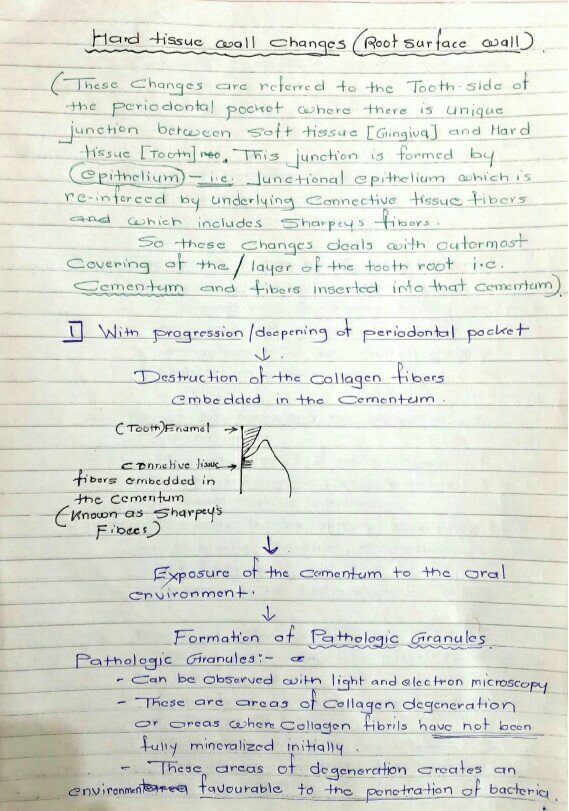 Hard tissue wall changes (Root surface wall).
(These Changes are referred to the Tooth-side of
the periodontal pocket where there is unique
junction between soft tissue [Gingiva] and Hard
tissue [Tooth]. This junction is formed by
(epithelium) - i.e. Junctional epithelium which is
re-inforced by underlying Connective tissue fibers
and which includes Sharpey's fibers.
So these changes deals with outermost
Covering of the / layer of the tooth root i.e.
Cementum and fibers inserted into that cementum)
1] With progression/deepening of periodontal pocket
↓
Destruction of the collagen fibers
embedded in the Cementum.
(Tooth) Enamel →
Connetive tissue →
fibers embedded in
the cementum
(Known as Sharpey's
Fibers)
↓
Exposure of the Cementum to the oral
environment.
↓
Formation of Pathologic Granules.
Pathologic Granules:-
- Can be observed with light and electron microscopy
- These are areas of collagen degeneration
or areas where Collagen fibrils have not been
fully mineralized initially.
- These areas of degeneration creates an
environment favourable to the penetration of bacteria.